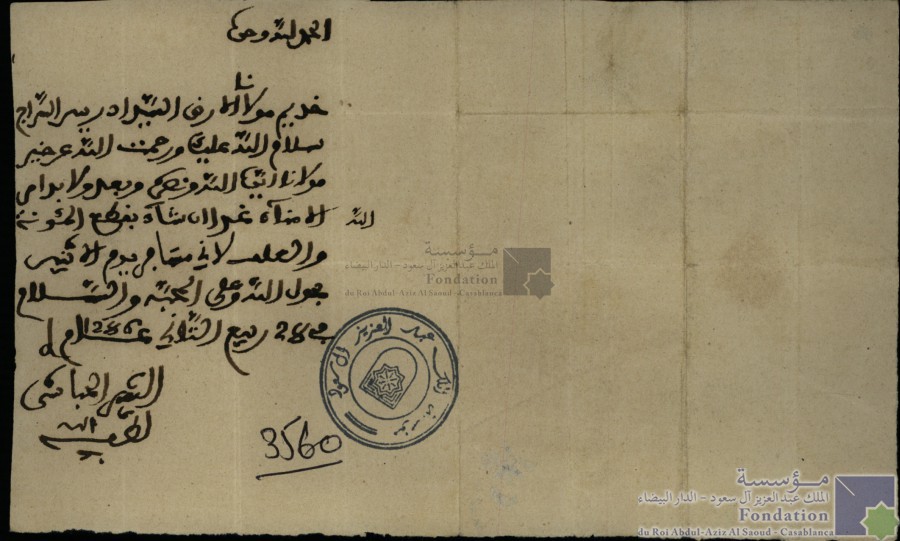 الحمد لله وحده
خديم مولانا الارضى السيد ادريس السراج
سلام الله عليك ورحمت الله عن خير
مولانا ايده الله ونصره وبعد ولابد امر
الامناء غدا ان شاء الله بقطع المئونة
والعلف لاني مسافر يوم الاثنين
بحول الله وعلى المحبة والسلام
في 28 ربيع الثاني عام 1286
لطف الله به
3560
مؤسسة الملك عبد العزيز آل سعود
مؤسسة
الملك عبد العزيز آل سعود - الدار البيضاء
Fondation
du Roi Abdul-Aziz Al Saoud - Casablanca
مؤسسة
الملك عبد العزيز آل سعود - الدار البيضاء
Fondation
du Roi Abdul-Aziz Al Saoud - Casablanca